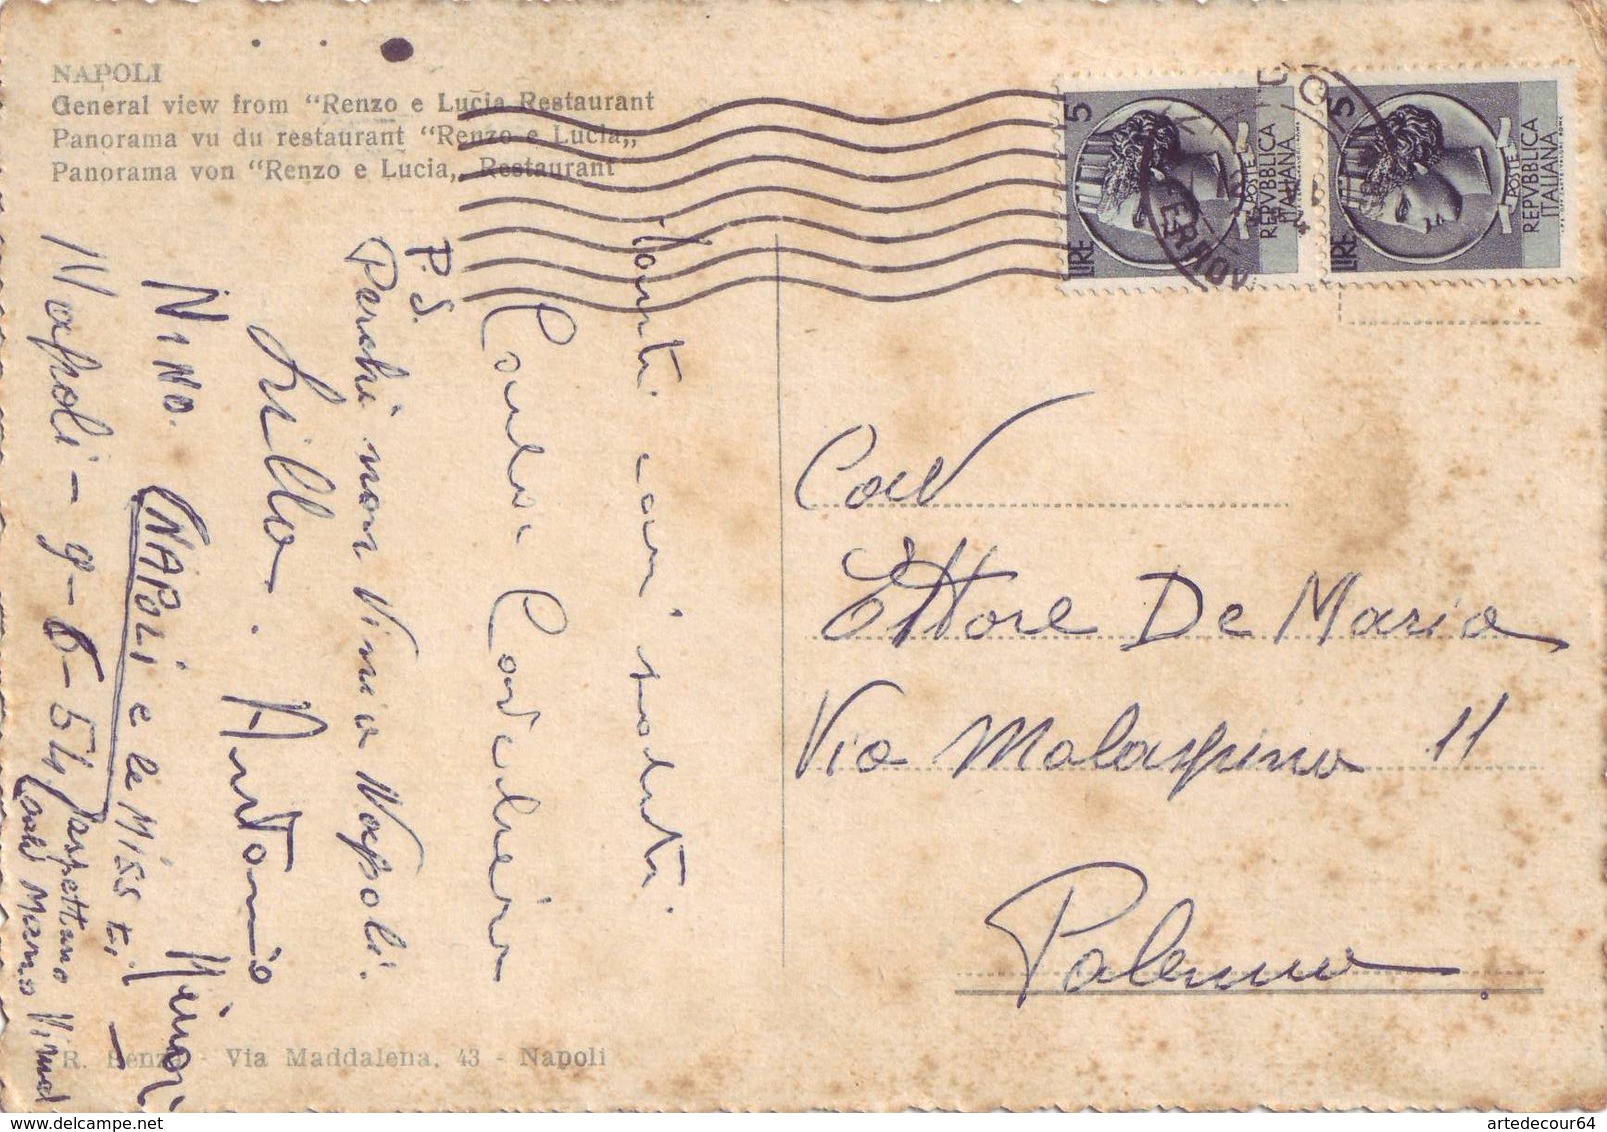 NAPOLI
General view from "Renzo e Lucia Restaurant
Panorama vu du restaurant "Renzo e Lucia„
Panorama von "Renzo e Lucia„ Restaurant
5
LIRE
POSTE
REPVBBLICA
ITALIANA
5
LIRE
POSTE
REPVBBLICA
ITALIANA
cari saluti
P.S.
Perché non Vieni a Napoli.
Lillo. Antonio
Nino.
NAPOLI e le Miss ti
Napoli - 9-6-54
Cav
Ettore De Maria
Via Malaspina 11
Palermo
R. - Via Maddalena, 43 - Napoli
www.delcampe.net
artedecour64